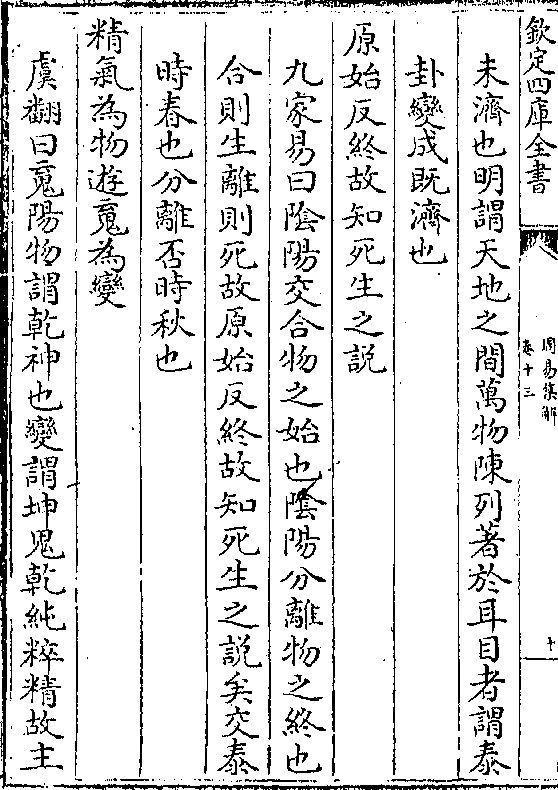 欽定四庫全書
周易集解
卷十三
十
未濟也明謂天地之間萬物陳列著於耳目者謂泰
卦變成既濟也
原始反終故知死生之説
九家易曰陰陽交合物之始也陰陽分離物之終也
合則生離則死故原始反終故知死生之説矣交泰
時春也分離否時秋也
精氣為物遊䰟為變
虞翻曰䰟陽物謂乾神也變謂坤鬼乾純粹精故主